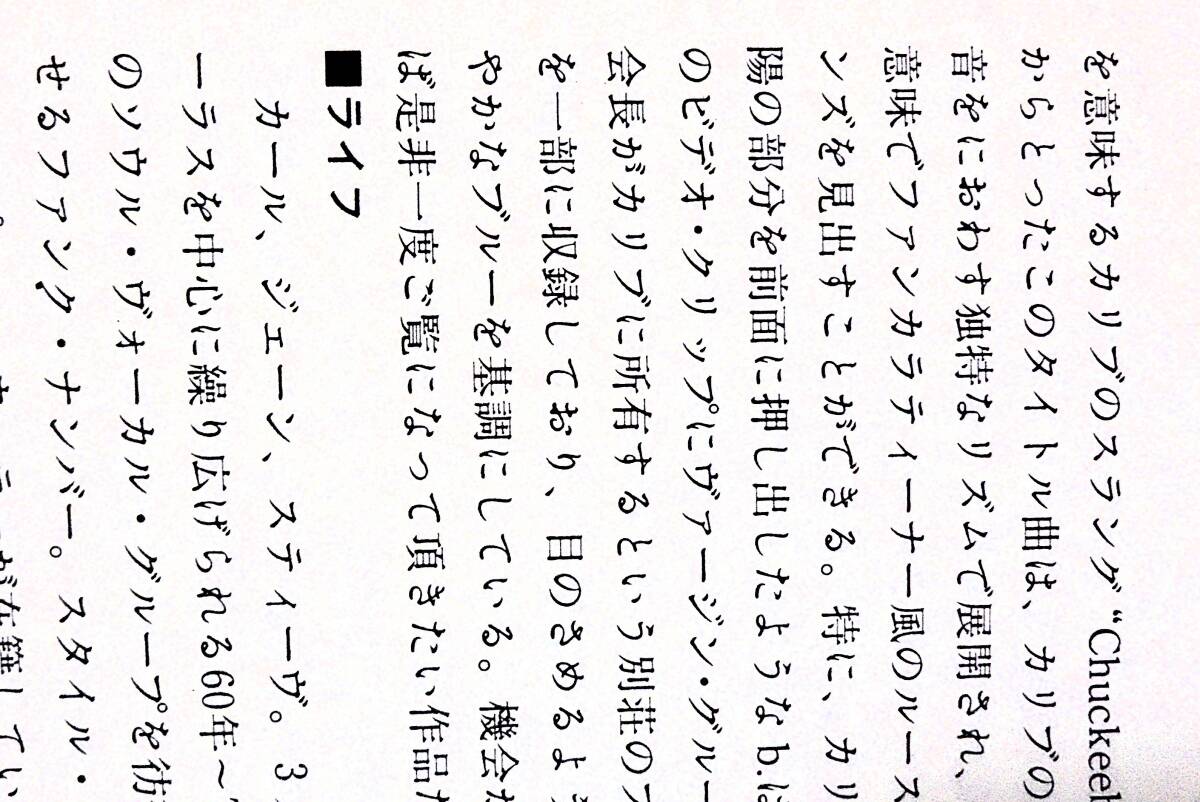 を意味するカリブのスラング“Chuckee
からとったこのタイトル曲は、カリブの
音をにおわす独特なリズムで展開され、
意味でファンカラティーナー風のルース
ンズを見出すことができる。特に、カリ
陽の部分を前面に押し出したようなb.は
のビデオ・クリップにヴァージン・グルー
会長がカリブに所有するという別荘の
を一部に収録しており、目のさめるよ
やかなブルーを基調にしている。機会
ば是非一度ご覧になって頂きたい作品
■ライフ
カール、ジェーン、スティーヴ。3
ーラスを中心に繰り広げられる60年～
のソウル・ヴォーカル・グループを彷
せるファンク・ナンバー。スタイル・
が在籍してい